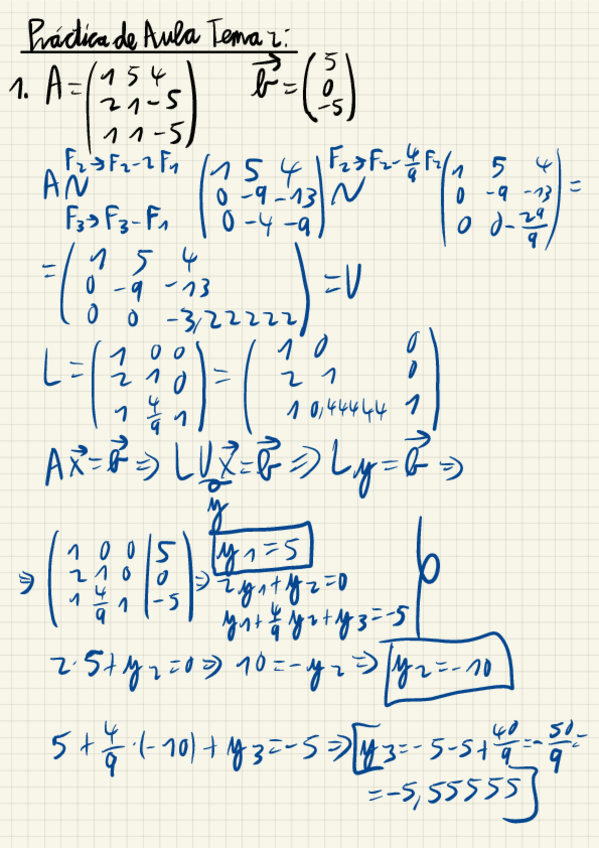 Práctica de Aula Tema 2:
1. A = (1 5 4 / 2 1 -5 / 1 1 -5) b⃗ = (5 / 0 / -5)
A ~ F2→F2-2F1 F3→F3-F1 (1 5 4 / 0 -9 -13 / 0 -4 -9) ~ F2→F2-4/9 F2 (1 5 4 / 0 -9 -13 / 0 0 -29/9) =
= (1 5 4 / 0 -9 -13 / 0 0 -3,22222) = U
L = (1 0 0 / 2 1 0 / 1 4/9 1) = (1 0 0 / 2 1 0 / 1 0,44444 1)
Ax⃗ = b⃗ ⇒ LUx⃗ = b⃗ ⇒ Ly = b⃗ ⇒
y
⇒ (1 0 0 | 5 / 2 1 0 | 0 / 1 4/9 1 | -5) ⇒ y1 = 5
2y1 + y2 = 0
y1 + 4/9 y2 + y3 = -5
2·5 + y2 = 0 ⇒ 10 = -y2 ⇒ y2 = -10
5 + 4/9 · (-10) + y3 = -5 ⇒ y3 = -5 -5 + 40/9 = -50/9 =
= -5,55555